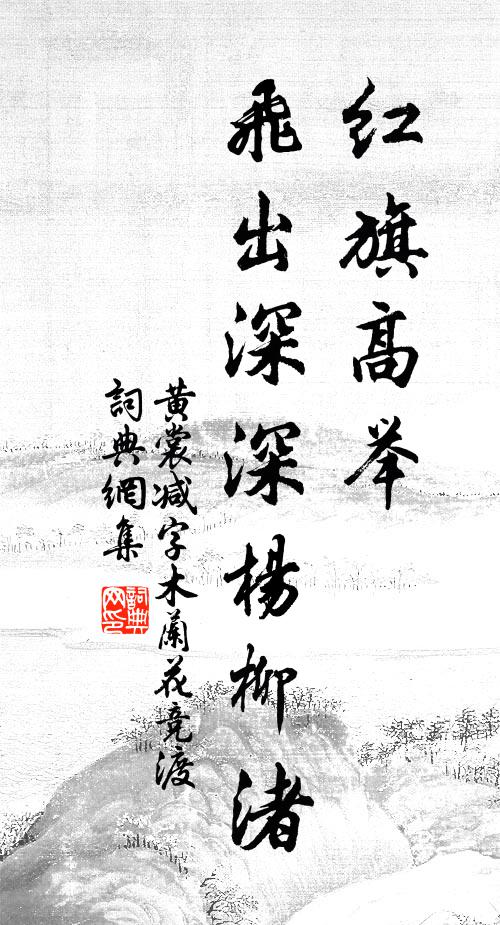 红旗高举
飛出深深楊柳渚
黄裳减字木蘭花竞渡
詞典網集
詞典网印